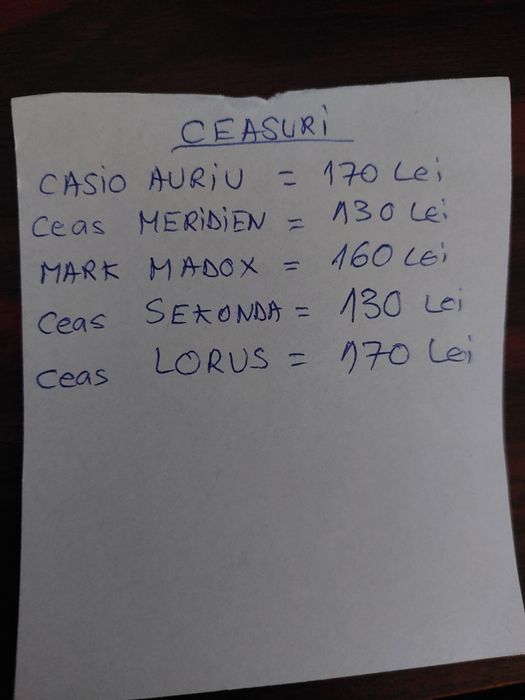 CEASURi
CASiO AURiU = 170 Lei
Ceas MERiDiEN = 130 Lei
MARK MADOX = 160 Lei
Ceas SEKONDA = 130 Lei
Ceas LORUS = 170 Lei